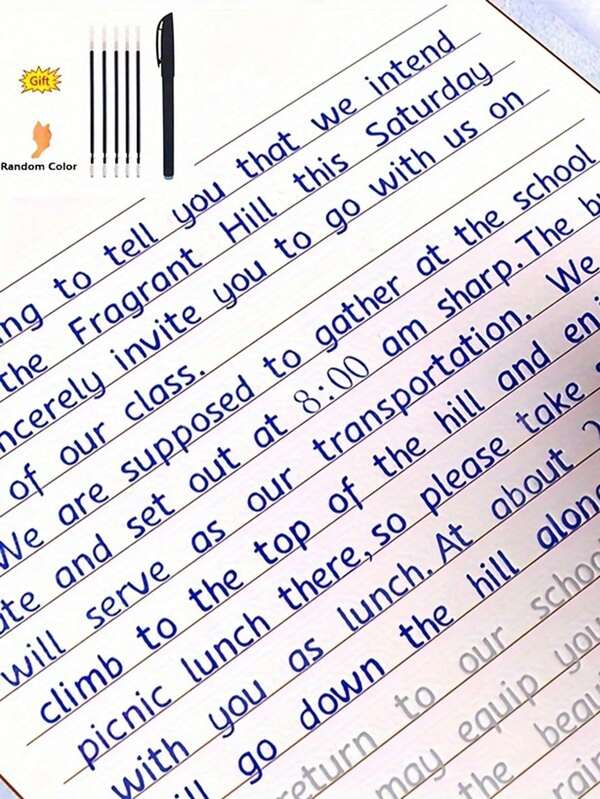 Gift
Random Color
to tell you that we intend
the Fragrant Hill this Saturday
invite you to go with us on
of our class.
We are supposed to gather at the school
and set out at 8:00 am sharp. The
will serve as our transportation. We
climb to the top of the hill and
picnic lunch there, so please take
with you as lunch. At about
go down the hill
return to our
may equip you
the